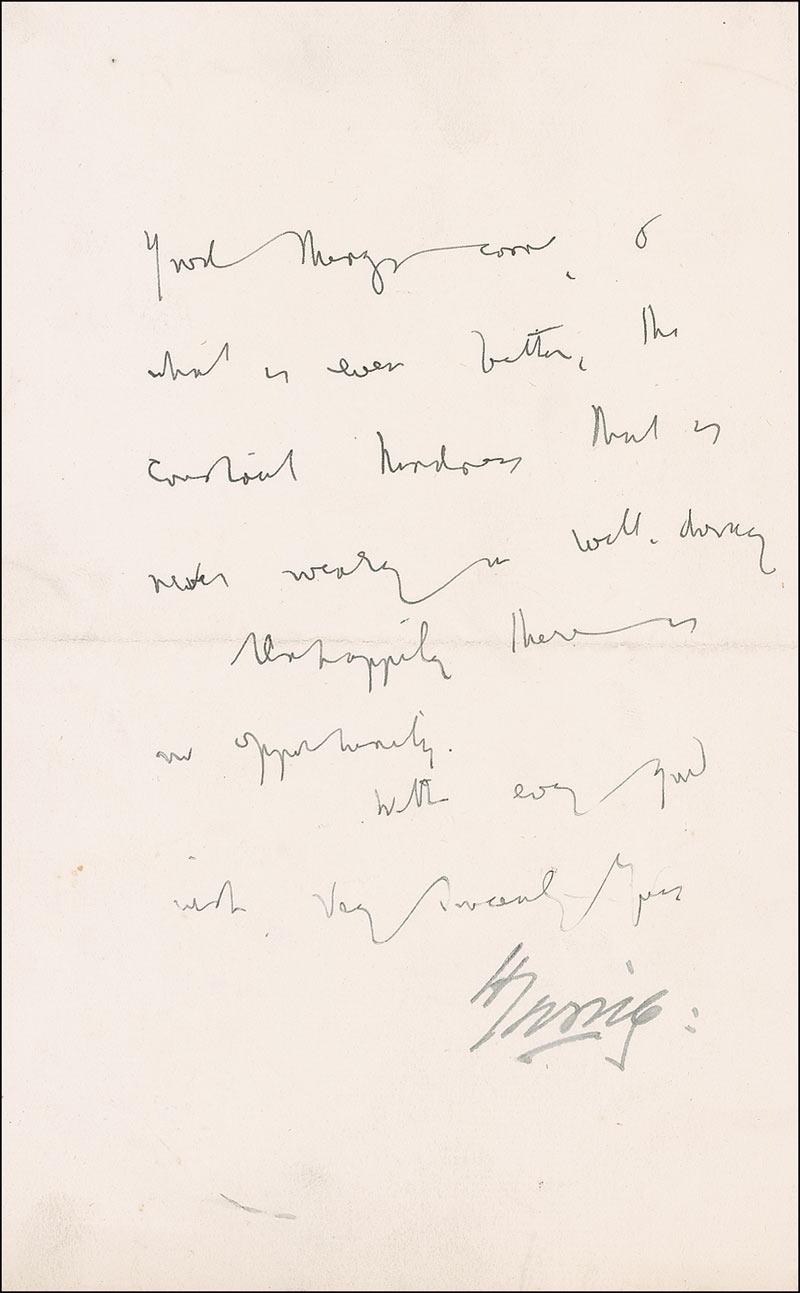 Good things come, &
what is even better, the
constant kindness that is
never weary in well-doing
Unhappily there is
no opportunity.
With every good
wish, Very sincerely Yours
HIrving: